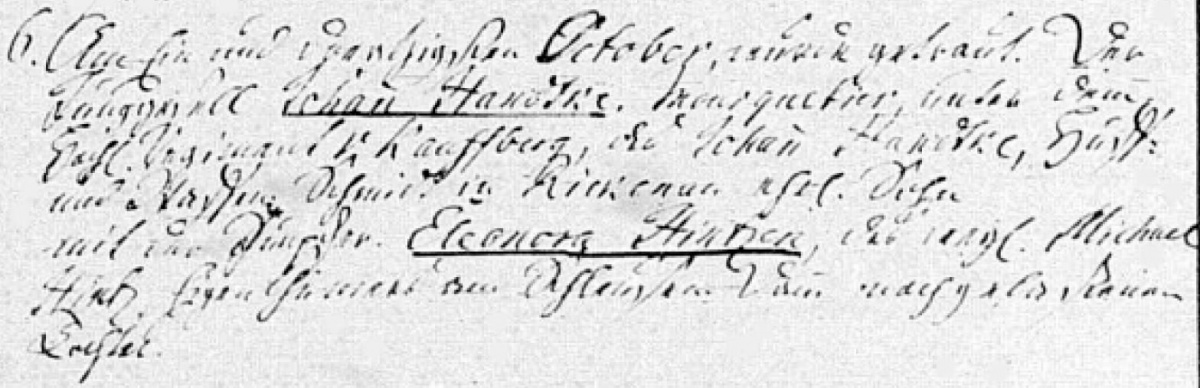 6. Am Ein und dreyßigsten October, wurde getraut. Der
Junggesell Johan Handtke. Mousquetier, unter dem
Hochl. Regiment v. Kauffberg, des Johan Handtke, Huf-
und Waffen Schmid in Rickenau ehel. Sohn
mit der Jungfer. Eleonora Hintzen, des weyl. Michael
Hintz, Eigenthümers am Damm nachgelassenen
Tochter.